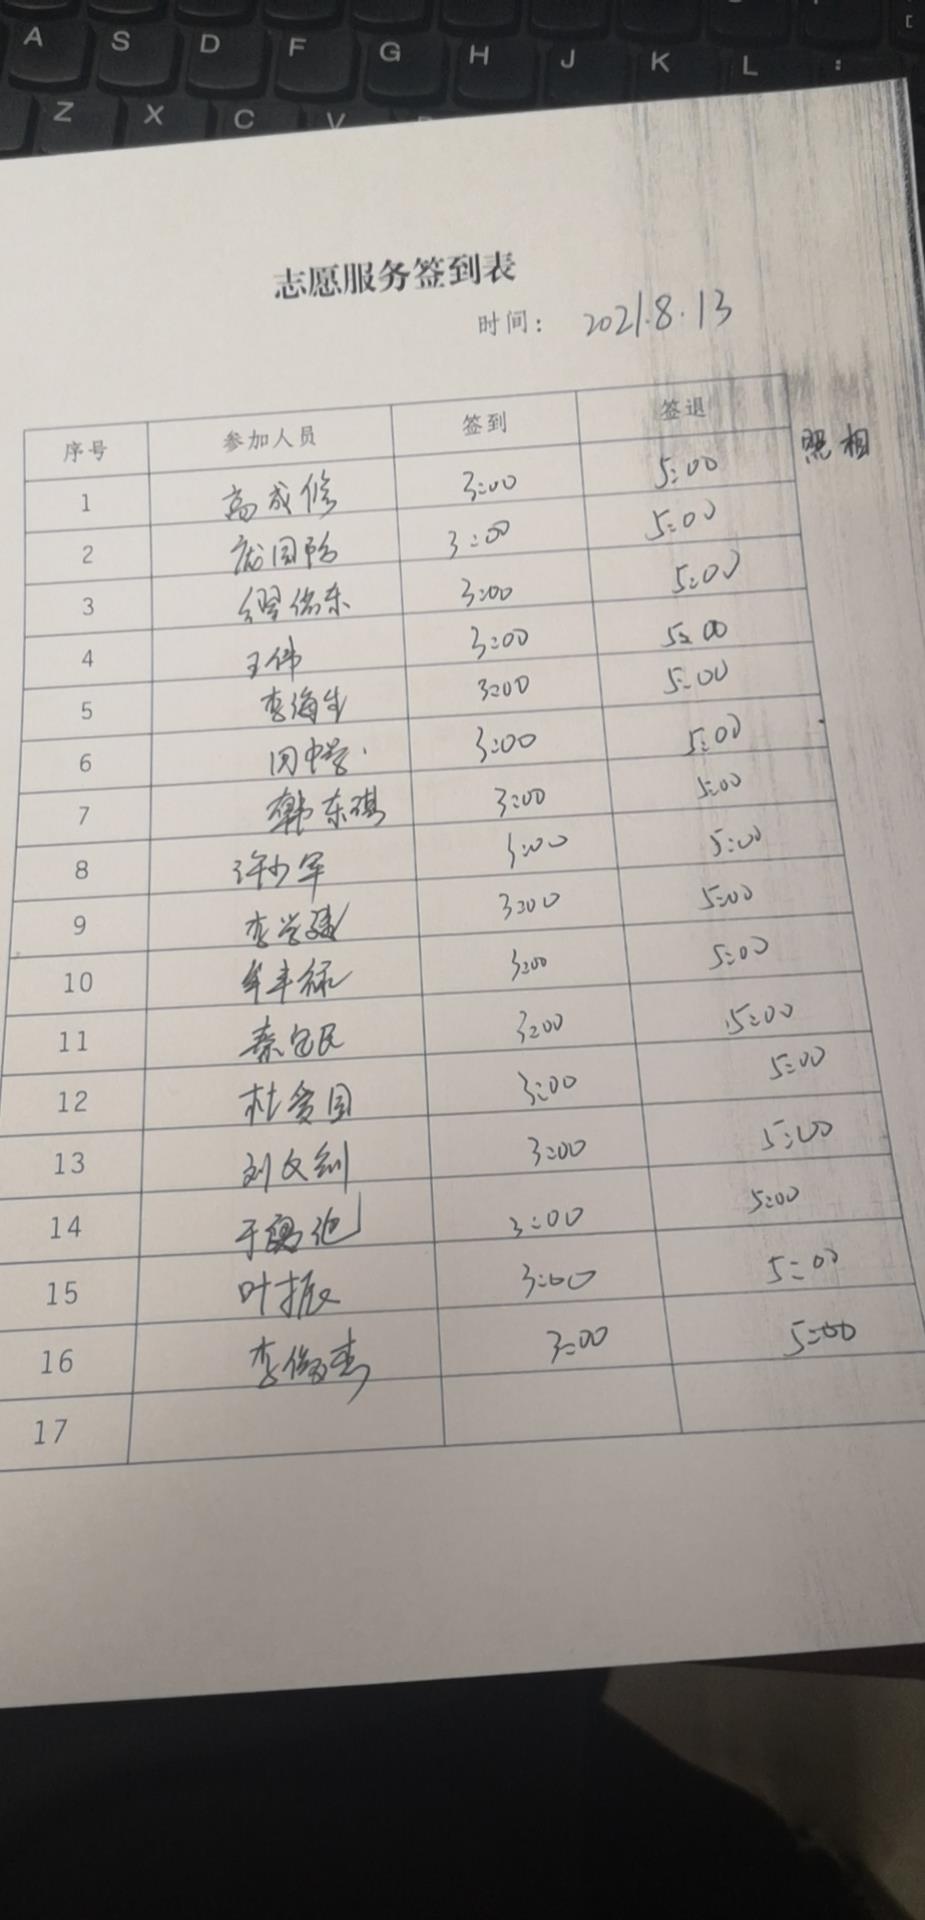 A S D F G H J K L :
Z X C V
志愿服务签到表
时间： 2021.8.13
序号 参加人员 签到 签退
照相
1 高成修 3:00 5:00
2 3:00 5:00
3 3:00 5:00
4 王伟 3:00 5:00
5 李海生 3:00 5:00
6 3:00 5:00
7 韩东琪 3:00 5:00
8 许少军 3:00 5:00
9 李学 3:00 5:00
10 牟丰禄 3:00 5:00
11 秦 民 3:00 5:00
12 杜爱国 3:00 5:00
13 刘文 3:00 5:00
14 于 3:00 5:00
15 叶振 3:00 5:00
16 李俊杰 3:00 5:00
17